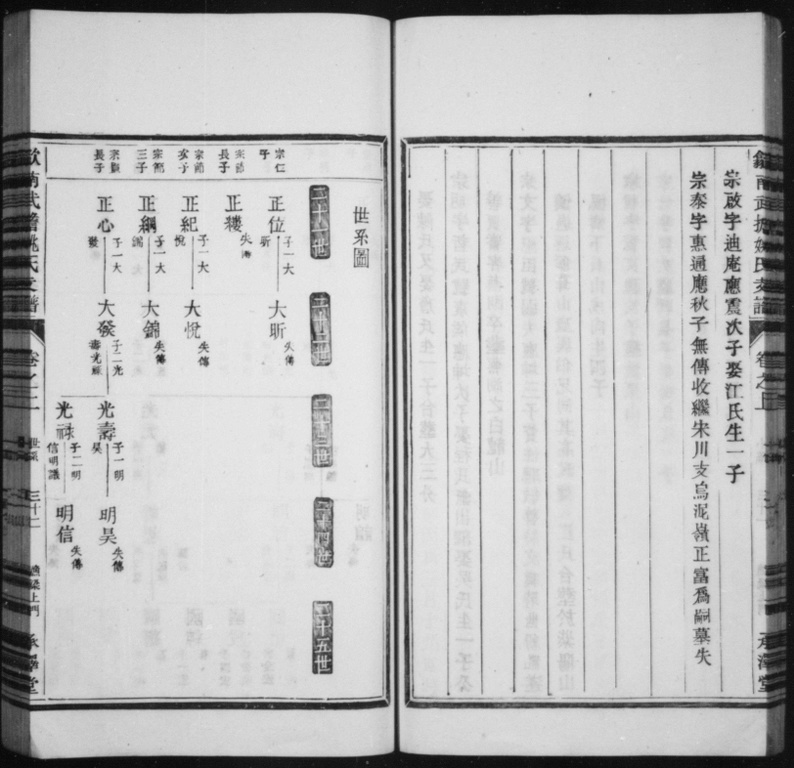 崇啟字迪庵應震次子娶江氏生一子
崇泰字惠通應秋子無傳收繼朱川支烏泥嶺正富為嗣墓失
卷之
承澤堂
世系圖
三十一世
三十二世
三十三世
三十四世
三十五世
宗仁
子
正位
子一大
昕
大昕
失傳
長子
正
失傳
次子
正紀
子一大
悅
大悅
失傳
三子
正綱
子一大
錦
大錦
失傳
長子
正心
子一大
發
大發
子二光
壽光祿
光壽
子一明
昊
明昊
失傳
光祿
子二明
信明謙
明信
失傳
歙南武譜姚氏支譜
卷之二
世系
三十二
上門
承澤堂